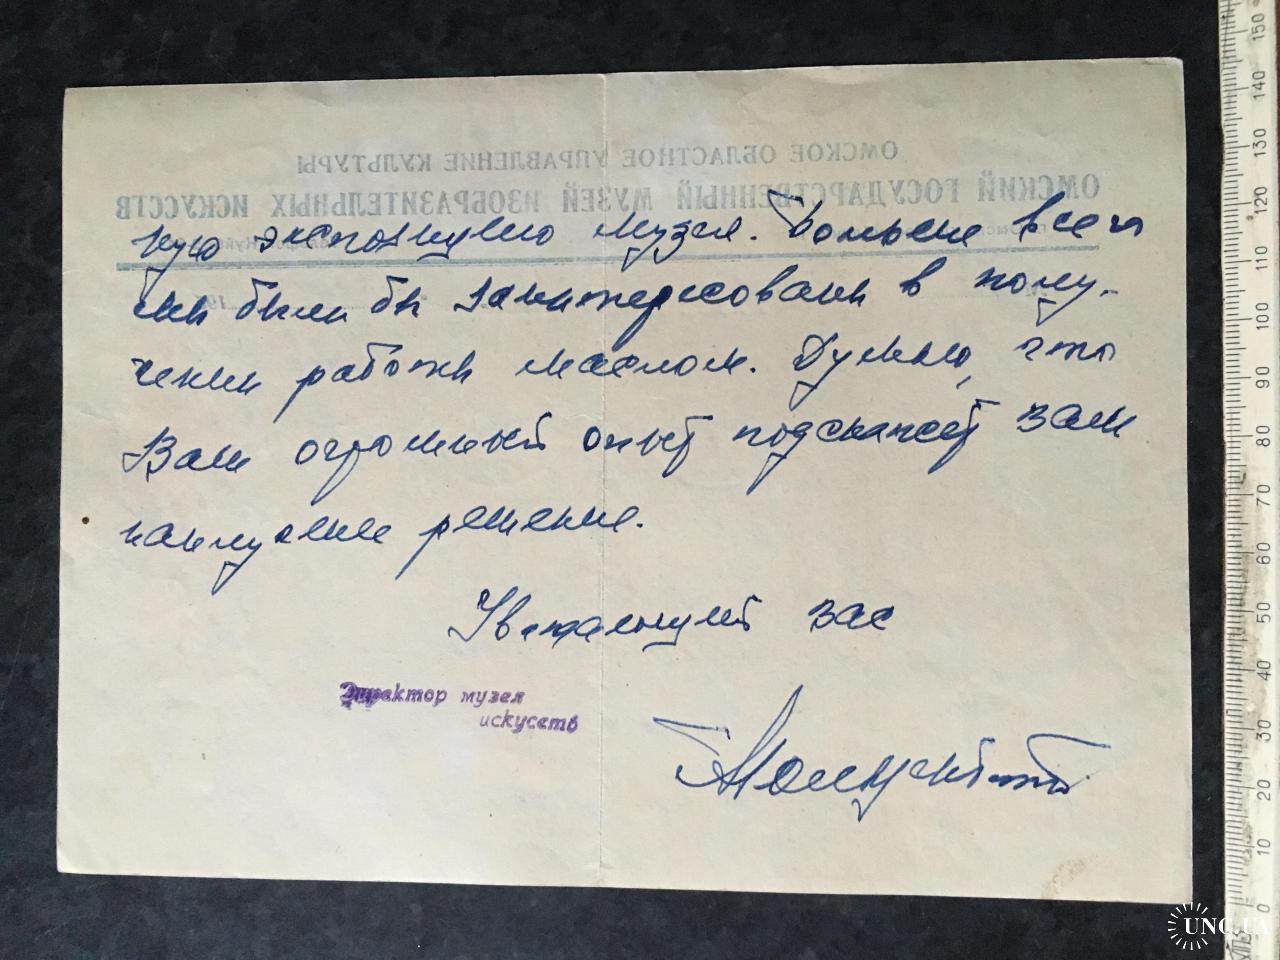 ОМСКОЕ ОБЛАСТНОЕ УПРАВЛЕНИЕ КУЛЬТУРЫ
ОМСКИЙ ГОСУДАРСТВЕННЫЙ МУЗЕЙ ИЗОБРАЗИТЕЛЬНЫХ ИСКУССТВ
ную экспозицию музея. Больше всего
мы были бы заинтересованы в полу-
чении работы маслом. Думаю, что
Ваш огромный опыт подскажет Вам
наилучшее решение.
Уважающий Вас
Директор музея
искусств
150
140
130
120
110
100
90
80
70
60
50
40
30
20
10
0
UNC.UA